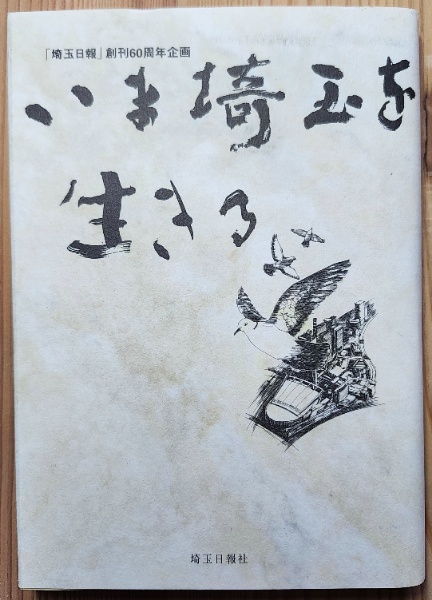 「埼玉日報」創刊60周年企画
いま埼玉を
生きる
埼玉日報社